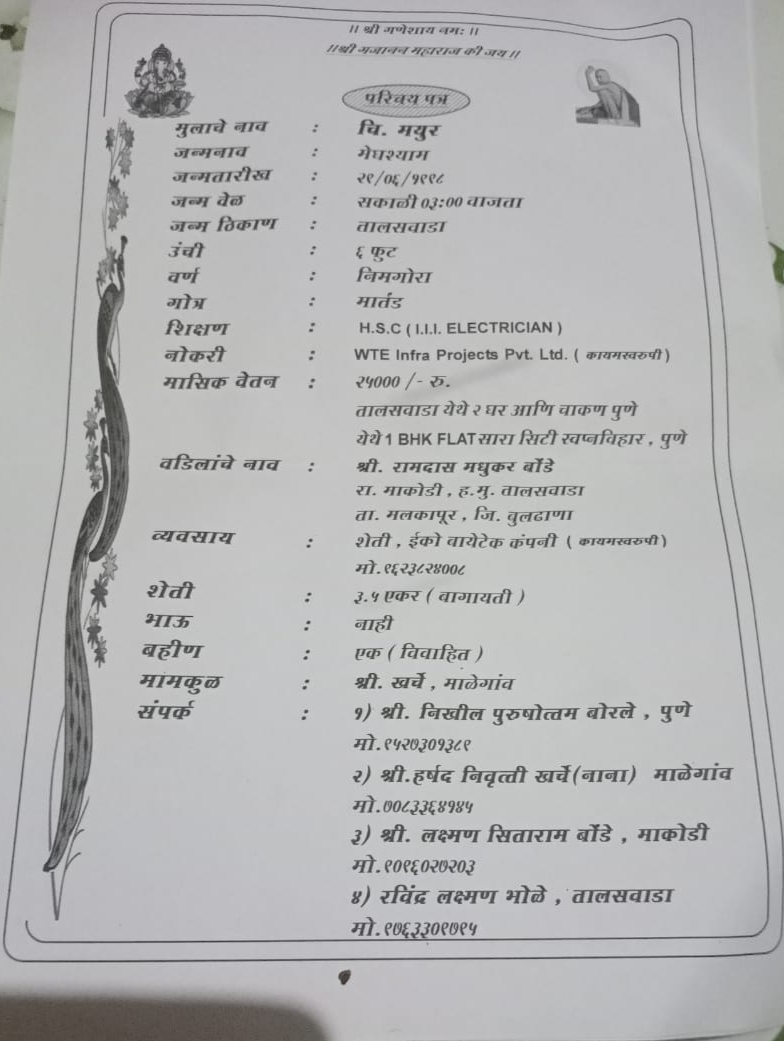 ।। श्री गणेशाय नमः ।।
।।श्री गजानन महाराज की जय।।
परिचय पत्र
मुलाचे नाव : चि. मयुर
जन्मनाव : मेघश्याम
जन्मतारीख : २९/०६/१९९८
जन्म वेळ : सकाळी ०३:०० वाजता
जन्म ठिकाण : तालसवाडा
उंची : ६ फुट
वर्ण : निमगोरा
गोत्र : मार्तंड
शिक्षण : H.S.C ( I.I.I. ELECTRICIAN )
नोकरी : WTE Infra Projects Pvt. Ltd. ( कायमस्वरुपी )
मासिक वेतन : २५००० /- रु.
तालसवाडा येथे २ घर आणि चाकण पुणे
येथे 1 BHK FLAT सारा सिटी स्वप्नविहार , पुणे
वडिलांचे नाव : श्री. रामदास मधुकर बोंडे
रा. माकोडी , ह.मु. तालसवाडा
ता. मलकापूर , जि. बुलढाणा
व्यवसाय : शेती , ईको वायेटेक कंपनी ( कायमस्वरुपी )
मो.९६२३८२४००८
शेती : ३.५ एकर ( बागायती )
भाऊ : नाही
बहीण : एक ( विवाहित )
मामकुळ : श्री. खर्चे , माळेगांव
संपर्क : १) श्री. निखील पुरुषोत्तम बोरले , पुणे
मो.९५२७३०१३८९
२) श्री.हर्षद निवृत्ती खर्चे(नाना) माळेगांव
मो.७०८३३६४१४५
३) श्री. लक्ष्मण सिताराम बोंडे , माकोडी
मो.९०९६०२७२०३
४) रविंद्र लक्ष्मण भोळे , तालसवाडा
मो.९७६३३०९७९५